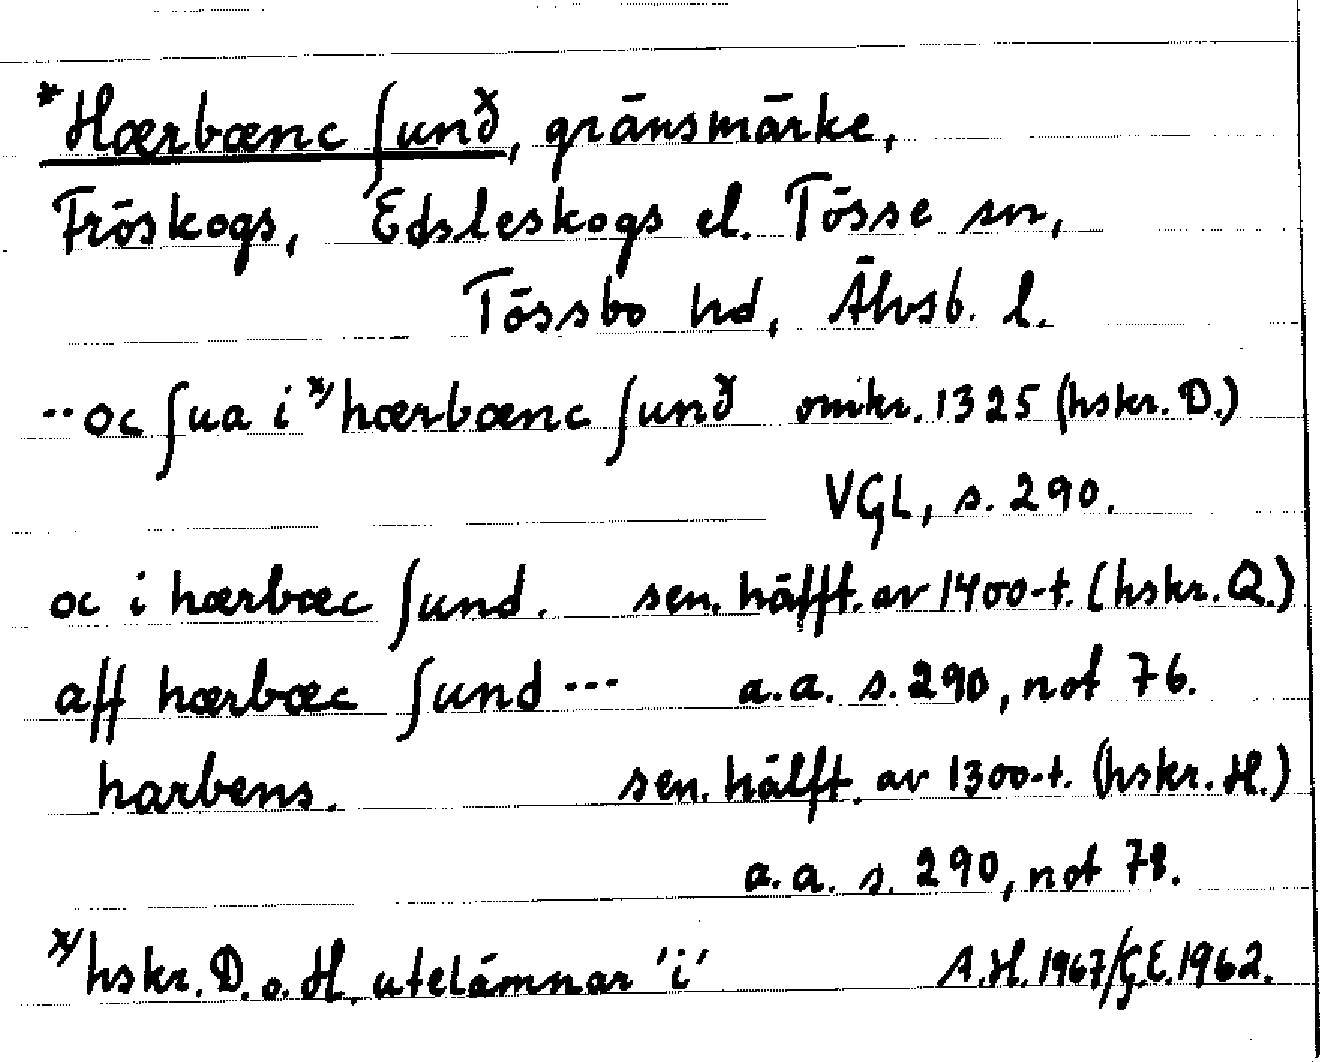 *Hærbænc ſunð, gränsmärke,
Fröskogs, Edsleskogs el. Tösse snr,
Tössbo hd, Älvsb. l.
··oc ſua i ˣ⁾hærbænc ſunð omkr. 1325 (hskr. D.)
VGL, s. 290.
oc i hærbæc ſund. sen. hälfft. av 1400-t. (hskr. Q.)
aff hærbæc ſund ··· a.a. s. 290, not 76.
harbens. sen. hälft. av 1300-t. (hskr. H.)
a.a. s. 290, not 78.
ˣ⁾hskr. D. o. H. utelämnar 'i' A.H. 1967/G.E. 1962.